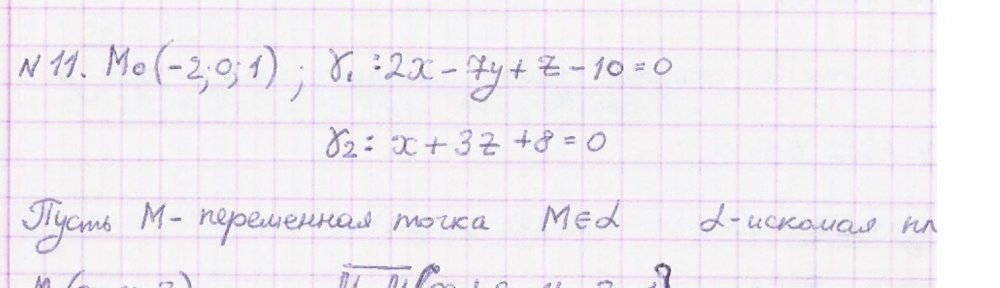 N 11. M₀(-2;0;1) ; γ₁: 2x - 7y + z - 10 = 0
γ₂: x + 3z + 8 = 0
Пусть M - переменная точка M∈α α-искомая